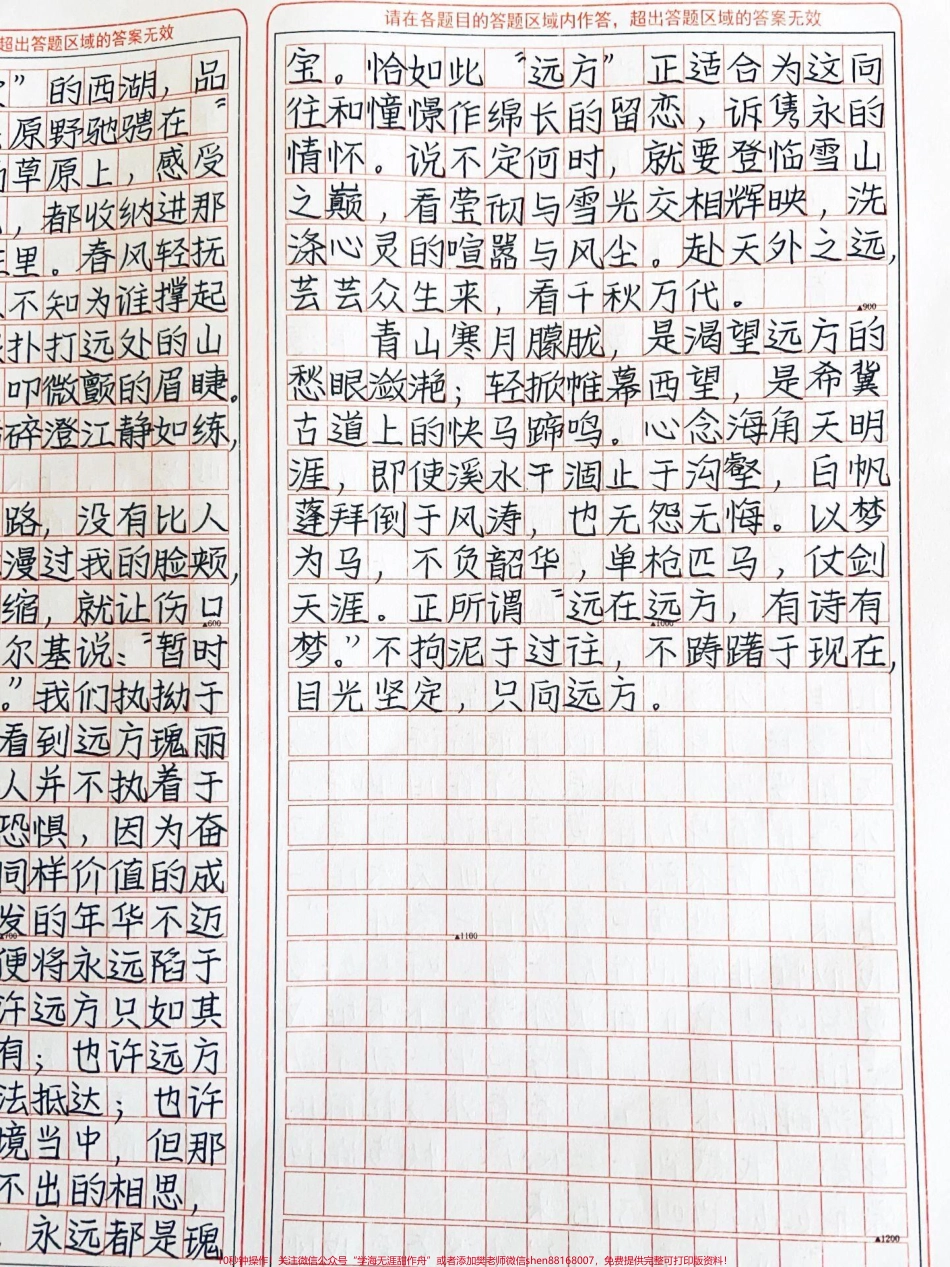 超出答题区域的答案无效
”的西湖，品
原野驰骋在“
草原上，感受
，都收纳进那
里。春风轻抚
不知为谁撑起
扑打远处的山
叩微颤的眉睫。
碎澄江静如练，
路，没有比人
漫过我的脸颊，
缩，就让伤口
▲600
尔基说：“暂时
。”我们执拗于
看到远方瑰丽
人并不执着于
恐惧，因为奋
同样价值的成
发的年华不迈
▲700
便将永远陷于
许远方只如其
有；也许远方
法抵达；也许
境当中，但那
不出的相思，
永远都是瑰
请在各题目的答题区域内作答，超出答题区域的答案无效
宝。恰如此“远方”正适合为这向
往和憧憬作绵长的留恋，诉隽永的
情怀。说不定何时，就要登临雪山
之巅，看莹彻与雪光交相辉映，洗
涤心灵的喧嚣与风尘。赴天外之远，
芸芸众生来，看千秋万代。
▲900
青山寒月朦胧，是渴望远方的
愁眼潋滟；轻掀帷幕西望，是希冀
古道上的快马蹄鸣。心念海角天明
涯，即使溪水干涸止于沟壑，白帆
蓬拜倒于风涛，也无怨无悔。以梦
为马，不负韶华，单枪匹马，仗剑
天涯。正所谓“远在远方，有诗有
▲1000
梦。”不拘泥于过往，不踌躇于现在，
目光坚定，只向远方。
▲1100
▲1200
10秒钟操作，关注微信公众号“学海无涯甜作舟”或者添加樊老师微信shen88168007，免费提供完整可打印版资料！